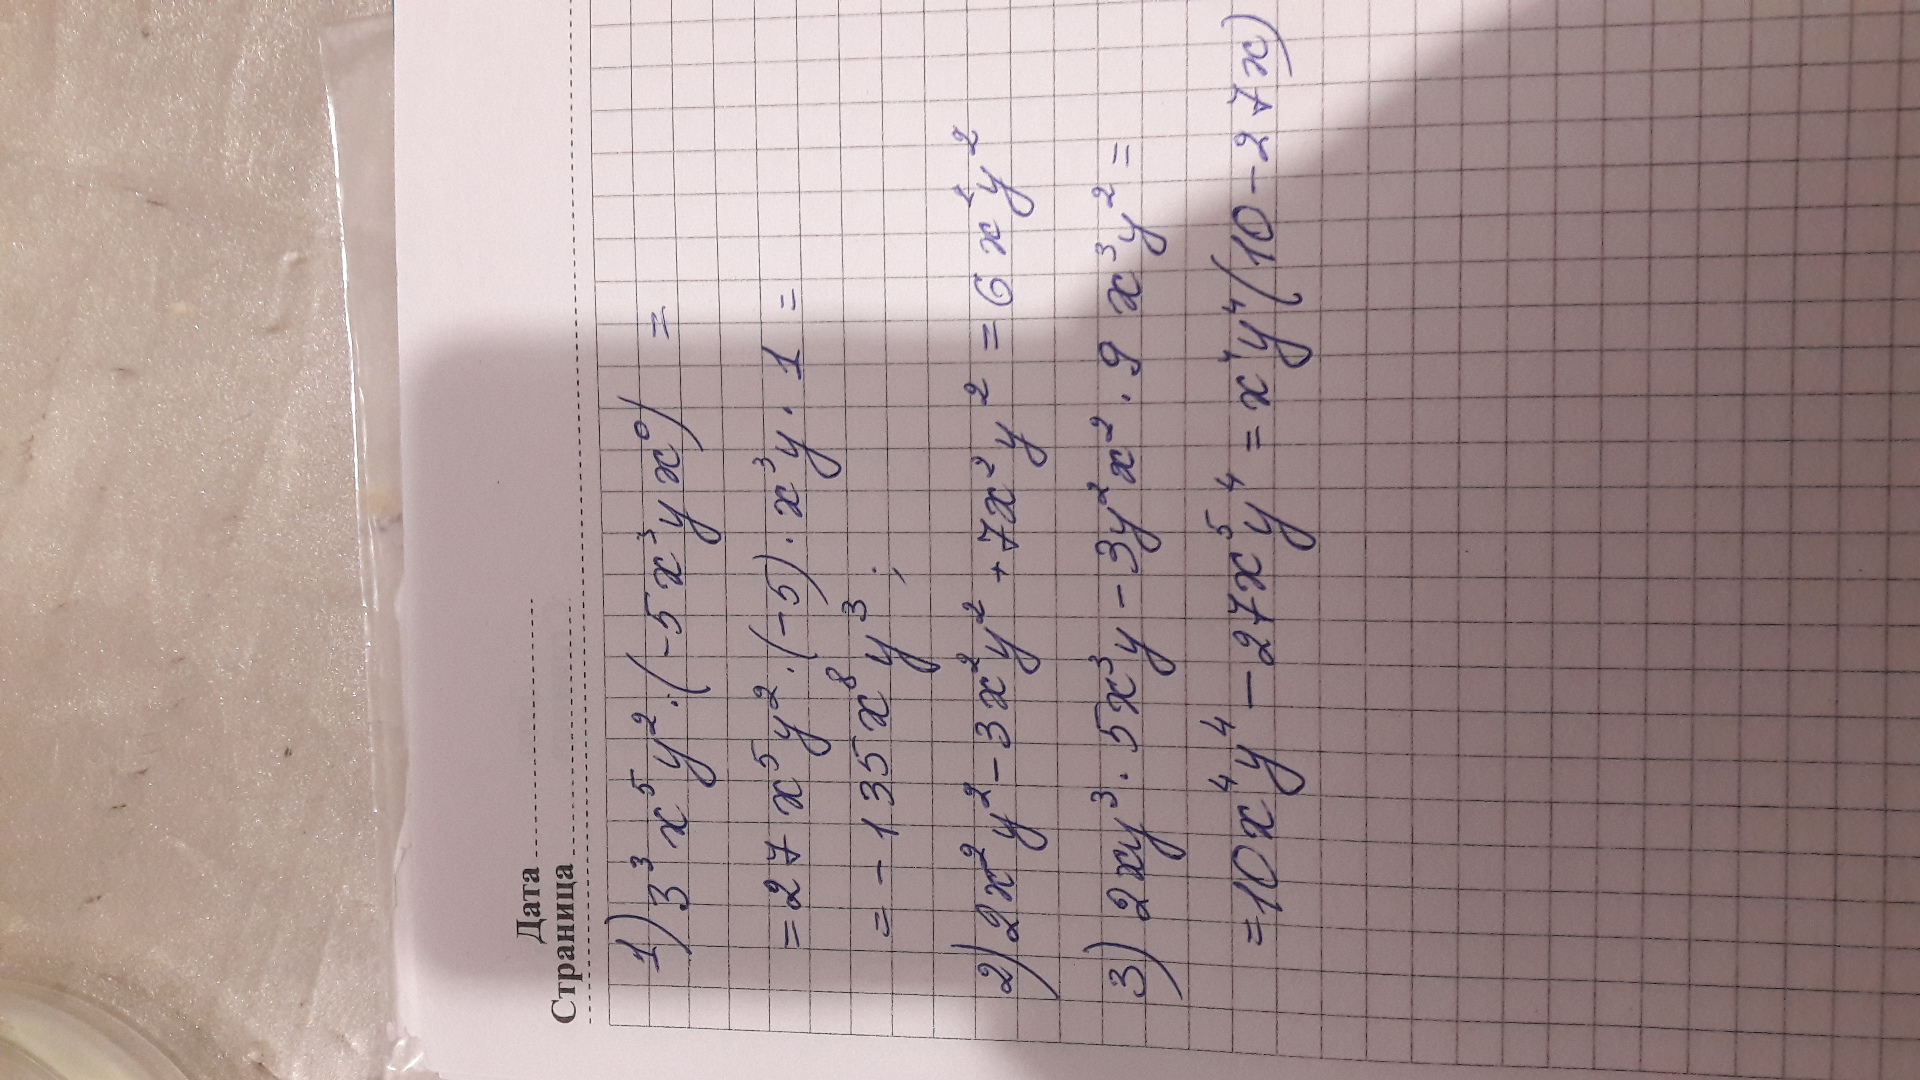 Дата
Страница
1) 3³x⁵y²·(-5x³yx⁰) =
=27x⁵y²·(-5)·x³y·1 =
= -135x⁸y³;
2) 2x²y²-3x²y²+7x²y² = 6x²y²
3) 2xy³·5x³y-3y²x²·9x³y² =
=10x⁴y⁴-27x⁵y⁴=x⁴y⁴(10-27x)